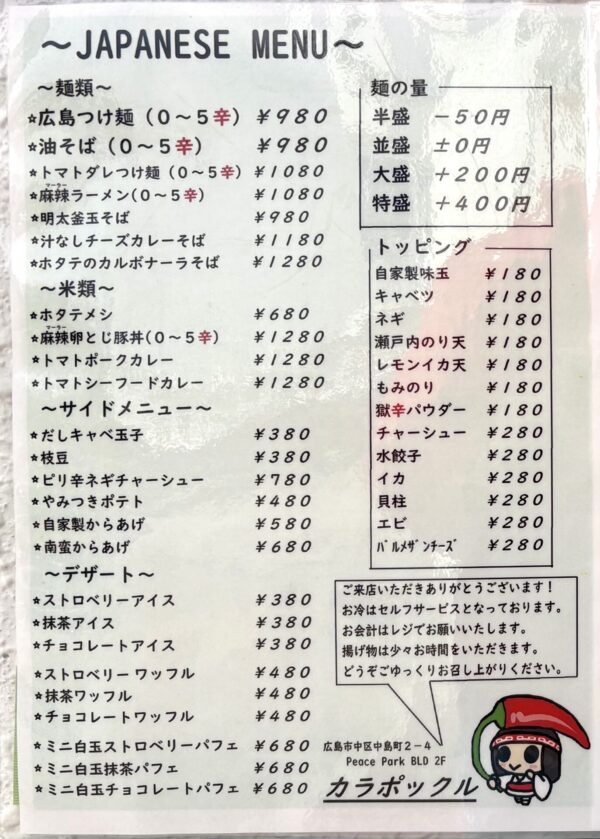 ～JAPANESE MENU～
～麺類～
☆広島つけ麺（０～５辛） ￥９８０
☆油そば（０～５辛） ￥９８０
☆トマトダレつけ麺（０～５辛） ￥１０８０
☆麻辣ラーメン（０～５辛） ￥１０８０
マーラー
☆明太釜玉そば ￥９８０
☆汁なしチーズカレーそば ￥１１８０
☆ホタテのカルボナーラそば ￥１２８０
～米類～
☆ホタテメシ ￥６８０
マーラー
☆麻辣卵とじ豚丼（０～５辛） ￥１２８０
☆トマトポークカレー ￥１２８０
☆トマトシーフードカレー ￥１２８０
～サイドメニュー～
☆だしキャベ玉子 ￥３８０
☆枝豆 ￥３８０
☆ピリ辛ネギチャーシュー ￥７８０
☆やみつきポテト ￥４８０
☆自家製からあげ ￥５８０
☆南蛮からあげ ￥６８０
～デザート～
☆ストロベリーアイス ￥３８０
☆抹茶アイス ￥３８０
☆チョコレートアイス ￥３８０
☆ストロベリー ワッフル ￥４８０
☆抹茶ワッフル ￥４８０
☆チョコレートワッフル ￥４８０
☆ミニ白玉ストロベリーパフェ ￥６８０
☆ミニ白玉抹茶パフェ ￥６８０
☆ミニ白玉チョコレートパフェ ￥６８０
麺の量
半盛 －５０円
並盛 ±０円
大盛 ＋２００円
特盛 ＋４００円
トッピング
自家製味玉 ￥１８０
キャベツ ￥１８０
ネギ ￥１８０
瀬戸内のり天 ￥１８０
レモンイカ天 ￥１８０
もみのり ￥１８０
獄辛パウダー ￥１８０
チャーシュー ￥２８０
水餃子 ￥２８０
イカ ￥２８０
貝柱 ￥２８０
エビ ￥２８０
ﾊﾟﾙﾒｻﾞﾝﾁｰｽﾞ ￥２８０
ご来店いただきありがとうございます！
お冷はセルフサービスとなっております。
お会計はレジでお願いいたします。
揚げ物は少々お時間をいただきます。
どうぞごゆっくりお召し上がりください。
広島市中区中島町２－４
Peace Park BLD 2F
カラポックル